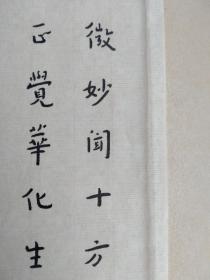 微妙聞十方
正覺華化生